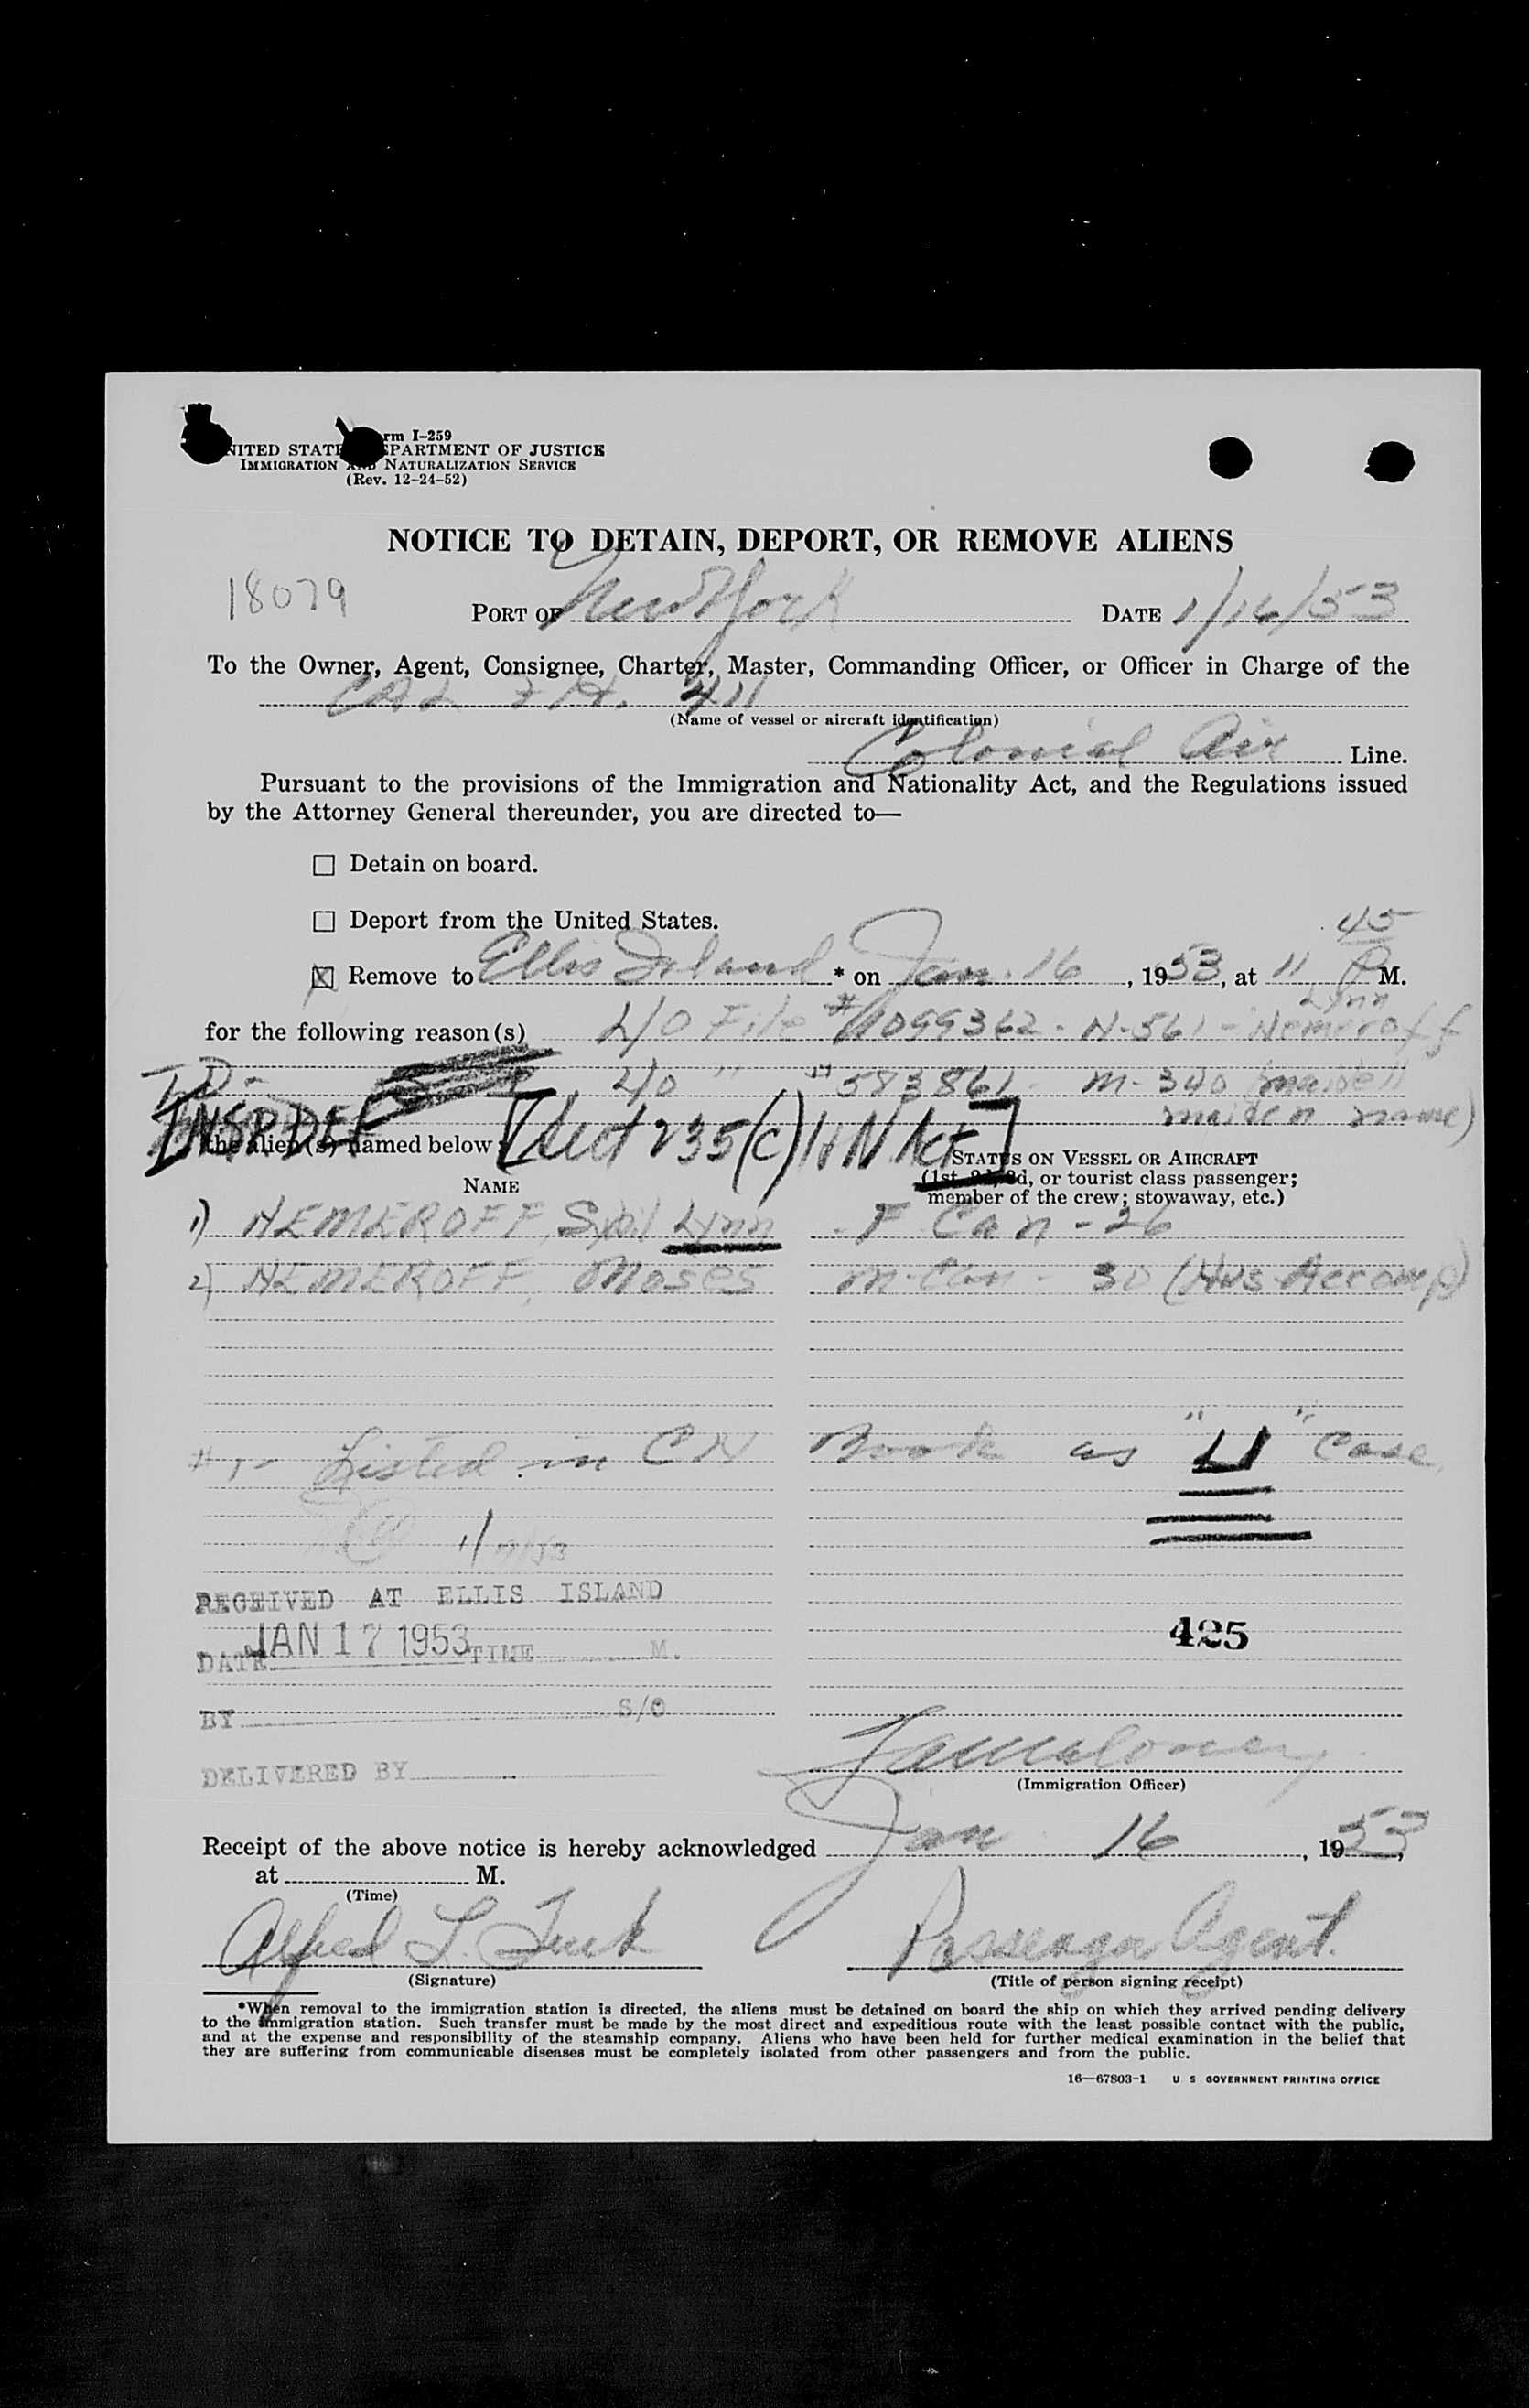 rm I-259
NITED STAT PARTMENT OF JUSTICE
IMMIGRATION AND NATURALIZATION SERVICE
(Rev. 12-24-52)
NOTICE TO DETAIN, DEPORT, OR REMOVE ALIENS
18079
PORT OF New York DATE 1/16/53
To the Owner, Agent, Consignee, Charter, Master, Commanding Officer, or Officer in Charge of the
CAL 411
(Name of vessel or aircraft identification)
Colonial Air Line.
Pursuant to the provisions of the Immigration and Nationality Act, and the Regulations issued
by the Attorney General thereunder, you are directed to—
☐ Detain on board.
☐ Deport from the United States.
☒ Remove to Ellis Island * on Jan. 16, 1953, at 11 45 P M.
for the following reason(s) L/O File # 1099362 - N-561 - Lynn Nemeroff
T.D. - L/O " " 583861 - M-340
maiden name)
INSP DEF [Sect 235(c) I+N Act]
the alien(s) named below:
STATUS ON VESSEL OR AIRCRAFT
(1st d, or tourist class passenger;
member of the crew; stowaway, etc.)
NAME
1) NEMEROFF, Sybil Lynn - F Can - 26
2) NEMEROFF, Moses M - Can - 30 (Hus Accomp)
#1 - Listed in CN Book as "LI" Case
RECEIVED AT ELLIS ISLAND
DATE JAN 17 1953 TIME M.
425
BY S/O
DELIVERED BY
Maloney
(Immigration Officer)
Receipt of the above notice is hereby acknowledged Jan 16, 1953,
at M.
(Time)
Alfred L. Passenger Agent.
(Signature) (Title of person signing receipt)
*When removal to the immigration station is directed, the aliens must be detained on board the ship on which they arrived pending delivery
to the immigration station. Such transfer must be made by the most direct and expeditious route with the least possible contact with the public,
and at the expense and responsibility of the steamship company. Aliens who have been held for further medical examination in the belief that
they are suffering from communicable diseases must be completely isolated from other passengers and from the public.
16—67803-1 U S GOVERNMENT PRINTING OFFICE